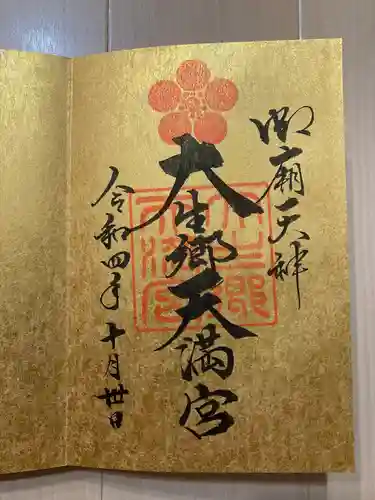 御廟天神
大生郷天満宮
令和四年十月卅日